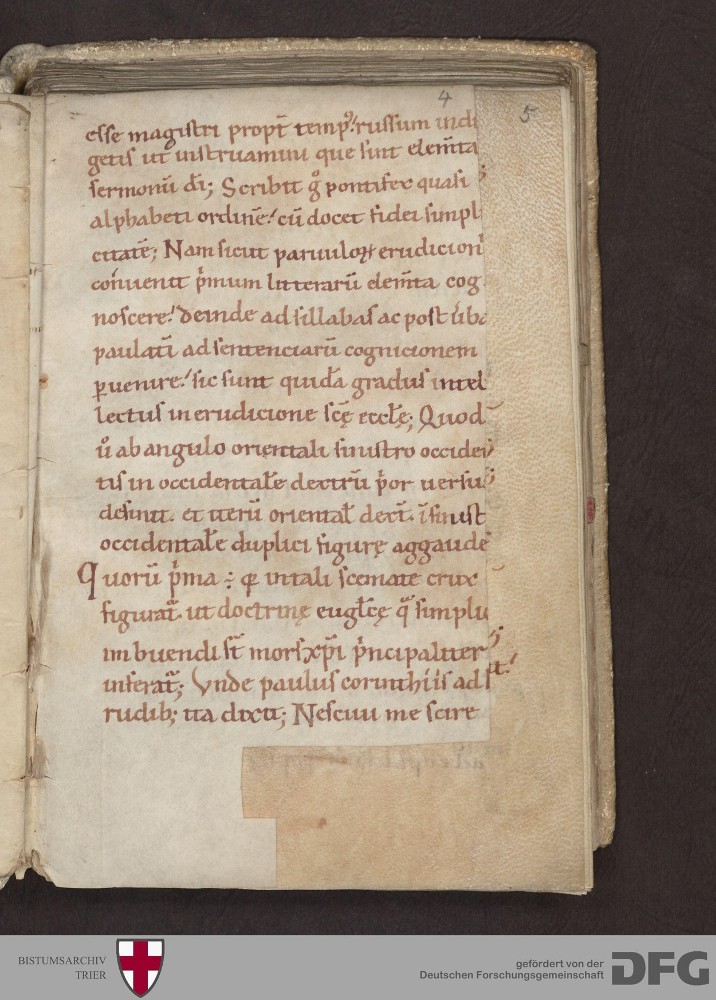 4
5
esse magistri propt̄ temp᷒ rursum indi
getis ut instruamini que sint elem̄ta
sermonū dī; Scribit gͦ pontifex quasi
alphabeti ordinē! cū docet fidei simpli
citatē; Nam sicut paruuloꝝ erudicioni
conuenit p̄mum litterarū elem̄ta cog
noscere! deinde ad sillabas ac post ūba
paulatī ad sentenciarū cognicionem
ꝑuenire! sic sunt quidā gradus intel
lectus in erudicione scę̄ eccl̄ę; Quod
uͦ ab angulo orientali sinistro occiden
tis in occidentale dextrū p̄or uersus
desinit. et iterū oriental̄ dext̄. ī sinist
occidentale duplici figurę aggaude
Quorū p̄ma ÷ qđ in tali scemate crux
figurat᷒. ut doctrinę eugl̄cę qͣ simplic
imbuendi st̄ mors xp̄i p̄ncipaliter
inferat᷒; Vnde paulus corinthiis ad
rudib; ita dixit; Nesciui me scire
BISTUMSARCHIV
TRIER
gefördert von der
Deutschen Forschungsgemeinschaft
DFG